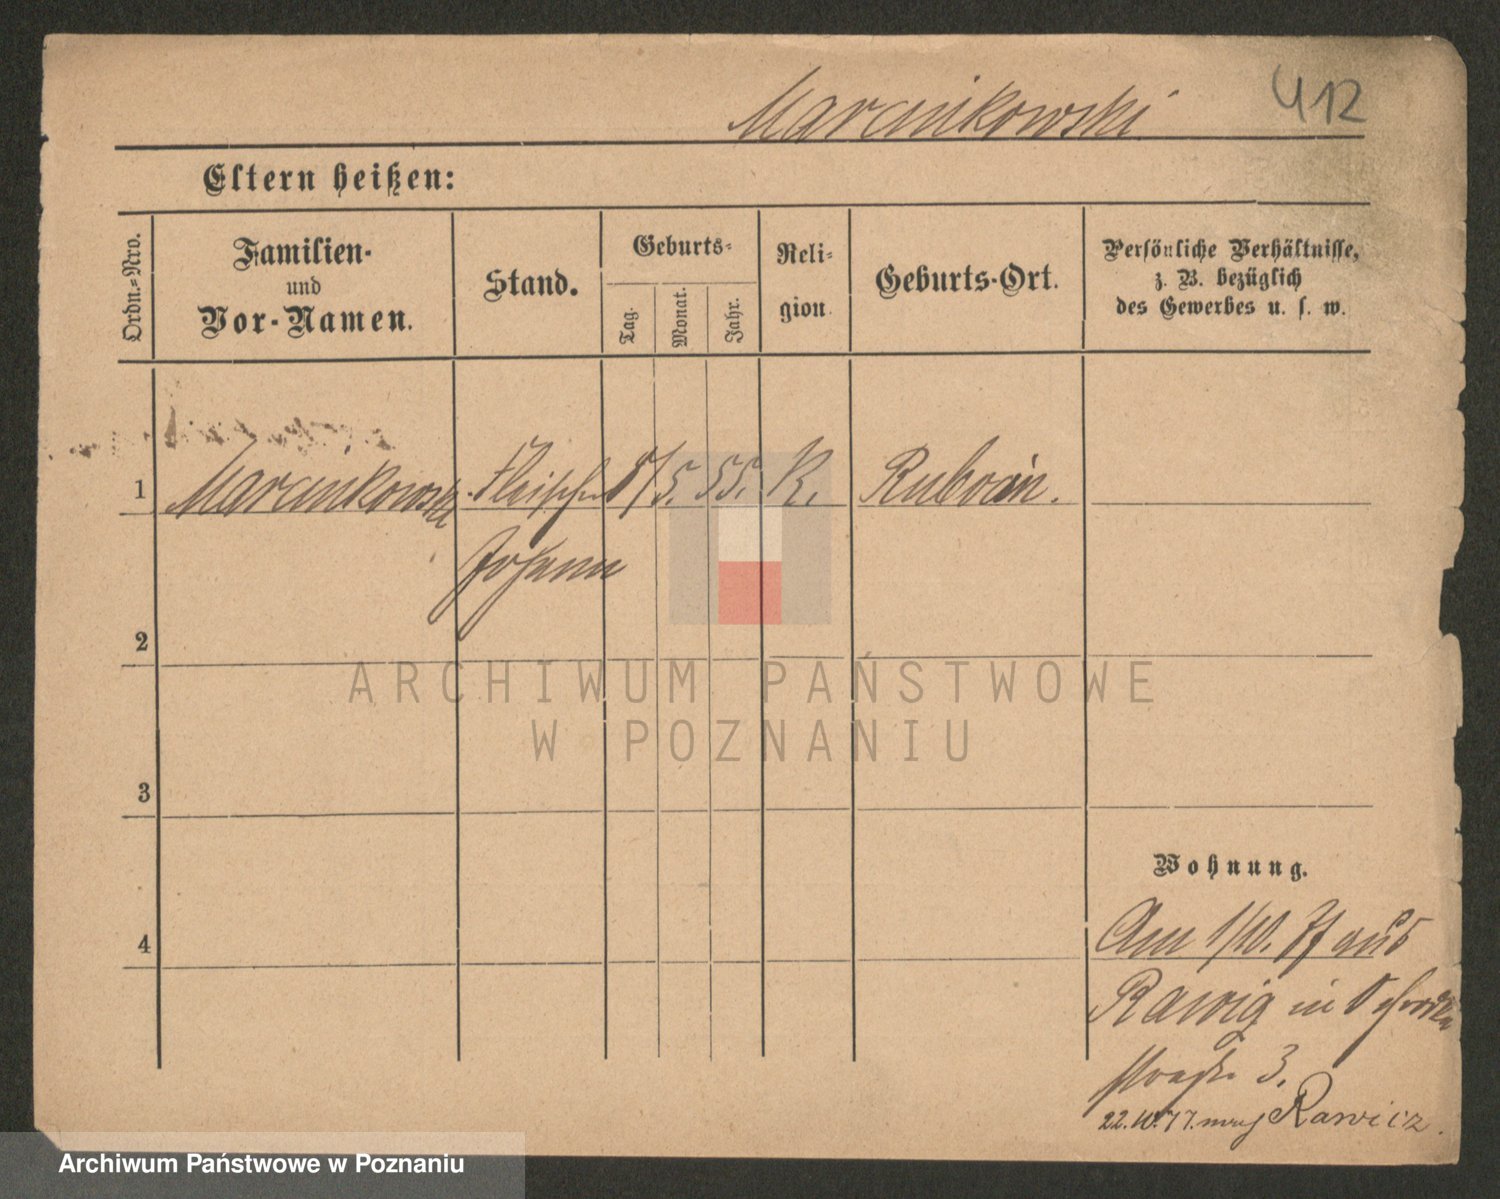 Marcinkowski
412
Eltern heißen:
Ordn.-Nro.
Familien-
und
Vor-Namen.
Stand.
Geburts-
Tag.
Monat.
Jahr.
Reli-
gion
Geburts-Ort.
Persönliche Verhältnisse,
z. B. bezüglich
des Gewerbes u. s. w.
1 Marcinkowski Fleischer 8/5. 55. K.
Johann
2
ARCHIWUM PAŃSTWOWE
W POZNANIU
3
Wohnung.
4
Am 1/10. 77 aus
in
straße 3.
22.10.77. nach Rawicz.
Archiwum Państwowe w Poznaniu